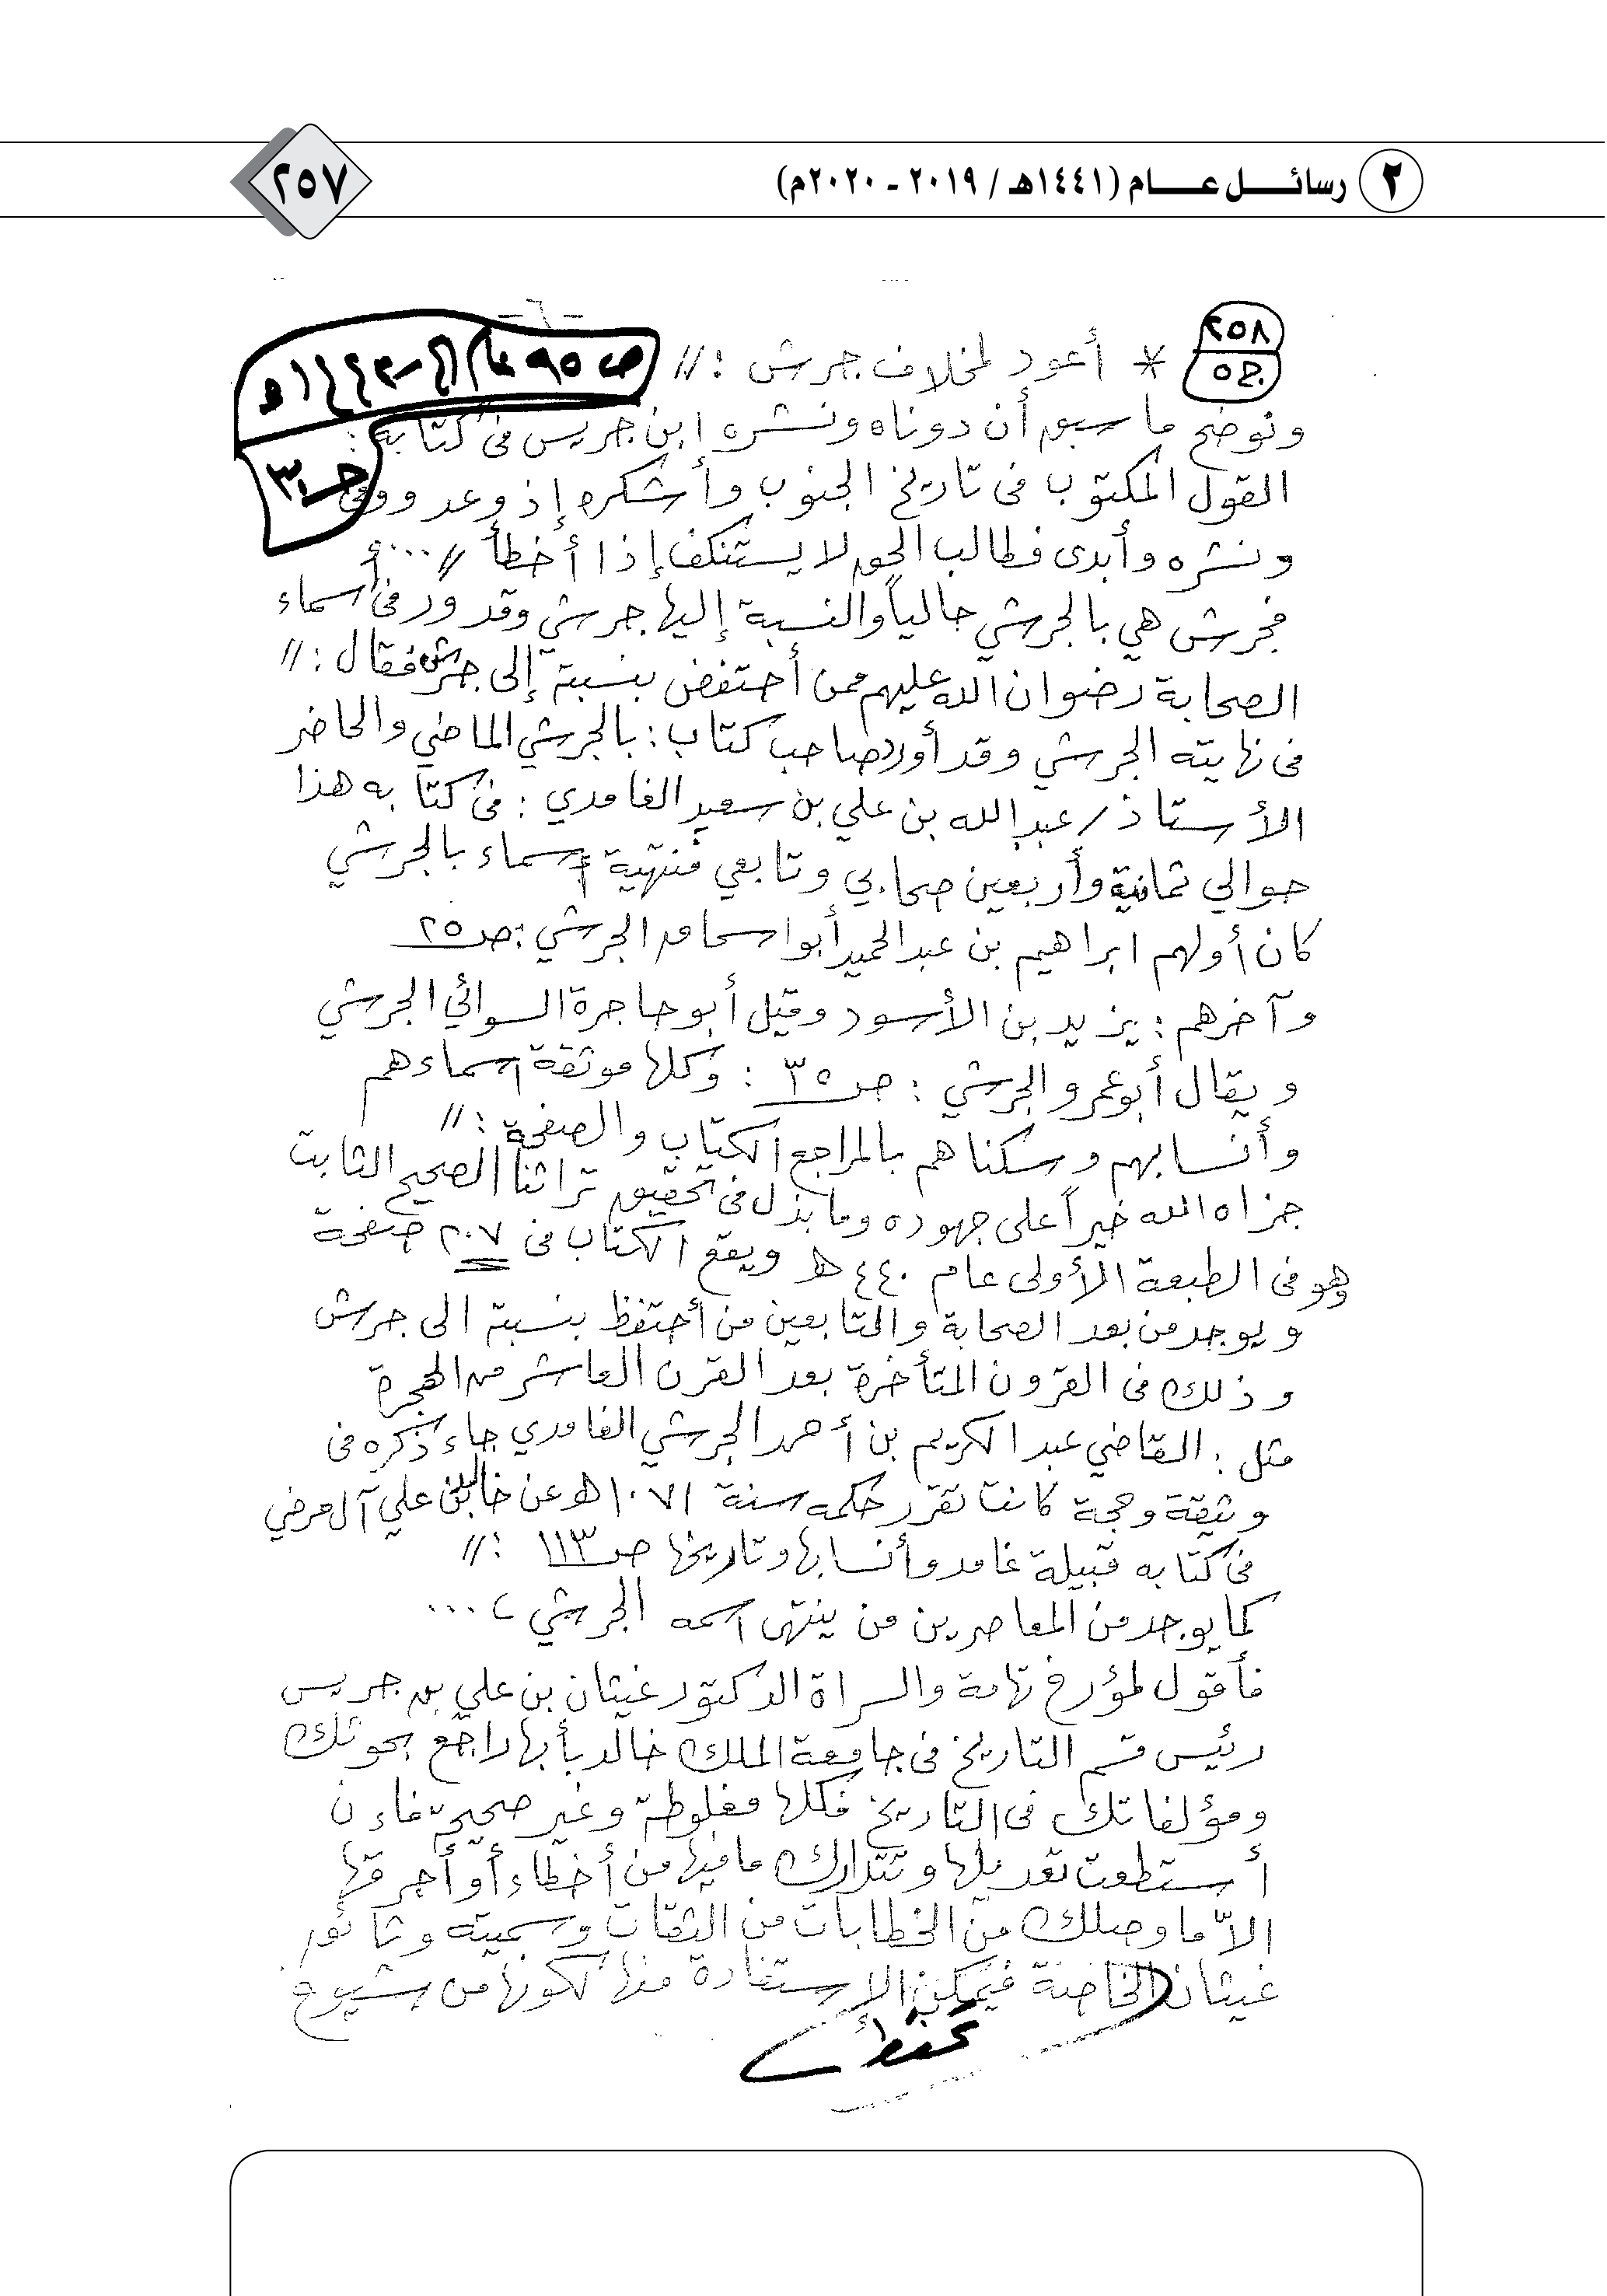 ٢ رسائل عام (١٤٤١هـ / ٢٠١٩ - ٢٠٢٠م)
٢٥٧
-٦-
٢٥٨
ج٥
* أعود لمخلاف جرش : //
ج٣
ونوضح ما سبق أن دوناه ونشره ابن جريس فى كتابه :
القول المكتوب فى تاريخ الجنوب وأشكره إذ وعد ووفى
ونشره وأبدى فطالب الحق لا يستنكف إذا أخطأ // ...
فجرش هي بالجرشي حالياً والنسبة إليها جرشي وقد ورد فى أسماء
الصحابة رضوان الله عليهم ممن أحتفض بنسبة إلى جرش فقال : //
فى نهايته الجرشي وقد أورد صاحب كتاب : بالجرشي الماضي والحاضر
الأستاذ / عبدالله بن علي بن سعيد الغامدي : فى كتابه هذا
حوالي ثمانية وأربعين صحابي وتابعي منتهية أسماء بالجرشي
كان أولهم ابراهيم بن عبدالحميد أبوا سحاق الجرشي : صـ٢٥
وآخرهم : يزيد بن الأسود وقيل أبو حاجرة السوائي الجرشي
ويقال أبو عمرو الجرشي : صـ٣٥ : وكلها موثقة أسماءهم
وأنسابهم وسكناهم بالمراجع الكتاب والصفحة : //
جزاه الله خيراً على جهوده وما بذل فى تحقيق تراثنا الصحيح الثابت
وهو فى الطبعة الأولى عام ٤٤٠ هـ ويقع الكتاب فى ٢٠٧ صفحة
ويوجد من بعد الصحابة والتابعين من أحتفظ بنسبة الى جرش
وذلك فى القرون المتأخرة بعد القرن العاشر من الهجرة
مثل : القاضي عبدالكريم بن أحمد الجرشي الغامدي جاء ذكره فى
وثيقة وحجة كانت تقرر حكمه سنة ١٠٧١هـ عن خالد بن علي آل مرضي
فى كتابه قبيلة غامد وأنسابها وتاريخها صـ١١٣ : //
كما يوجد من المعاصرين من ينتهى اسمه الجرشي ، ...
فأقول لمؤرخ تهامة والسراة الدكتور غيثان بن علي بن جريس
رئيس قسم التاريخ فى جامعة الملك خالد بأبها راجع بحوثك
ومؤلفاتك فى التاريخ فكلها مغلوطة وغير صحيحة فاءن
أستطعت تعديلها وتتدارك ما فيها من أخطاء أو أحرقها
الاّ ما وصلك من الخطابات من الثقات وسميته وثائق
غيثان الخاصة فيمكن الإستفادة منها لكونها من شيوخ